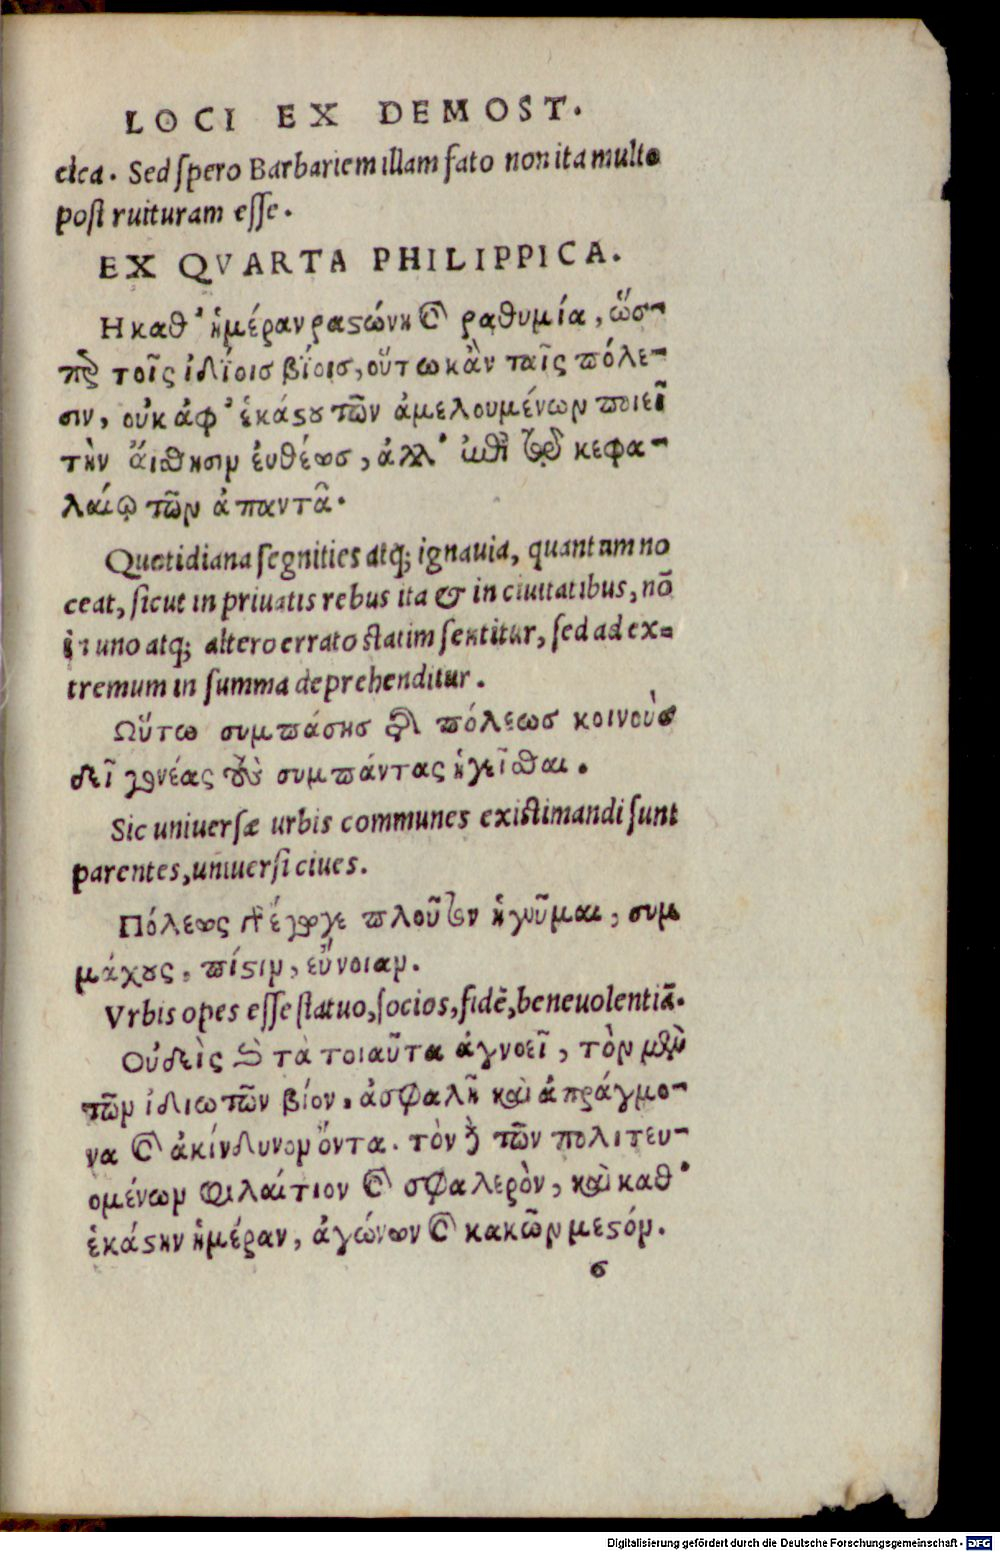 LOCI EX DEMOST.
elea. Sed ſpero Barbariem illam fato non ita multo
poſt ruituram eſſe.
EX QVARTA PHILIPPICA.
Η καθ' ἡμέραν ραϛώνη καὶ ραθυμία, ὥσ-
περ τοῖς ἰδίοισ βίοισ, οὕτω κἂν ταῖς πόλε-
σιν, οὐκ ἀφ' ἑκάϛου τῶν ἀμελουμένων ποιεῖ
τὴν ἄισθησιν ἐυθέωσ, ἀλλ' ἐπὶ τῷ κεφα-
λαίῳ τῶν ἁπαντᾶ.
Quotidiana ſegnities atq; ignauia, quantum no
ceat, ſicut in priuatis rebus ita & in ciuitatibus, nō
in uno atq; altero errato ſtatim ſentitur, ſed ad ex=
tremum in ſumma deprehenditur.
Ωὕτω συμπάσησ τῆς πόλεωσ κοινοὺσ
δεῖ γονέας τοὺς συμπάντας ἡγεῖσθαι.
Sic uniuerſæ urbis communes exiſtimandi ſunt
parentes, uniuerſi ciues.
Πόλεως δ' ἔγωγε πλοῦτον ἡγοῦμαι, συμ
μάχους, πίϛιν, εὔνοιαν.
Vrbis opes eſſe ſtatuo, ſocios, fidē, beneuolentiā.
Οὐδεὶς δὲ τὰ τοιαῦτα ἀγνοεῖ, τὸν μὲν
τῶν ἰδιωτῶν βίον, ἀσφαλῆ καὶ ἀπράγμο-
να καὶ ἀκίνδυνον ὄντα. τὸν δὲ τῶν πολιτευ-
ομένων φιλαίτιον καὶ σφαλερὸν, καὶ καθ'
ἑκάϛην ἡμέραν, ἀγώνων καὶ κακῶν μεϛόν.
σ
Digitalisierung gefördert durch die Deutsche Forschungsgemeinschaft - DFG